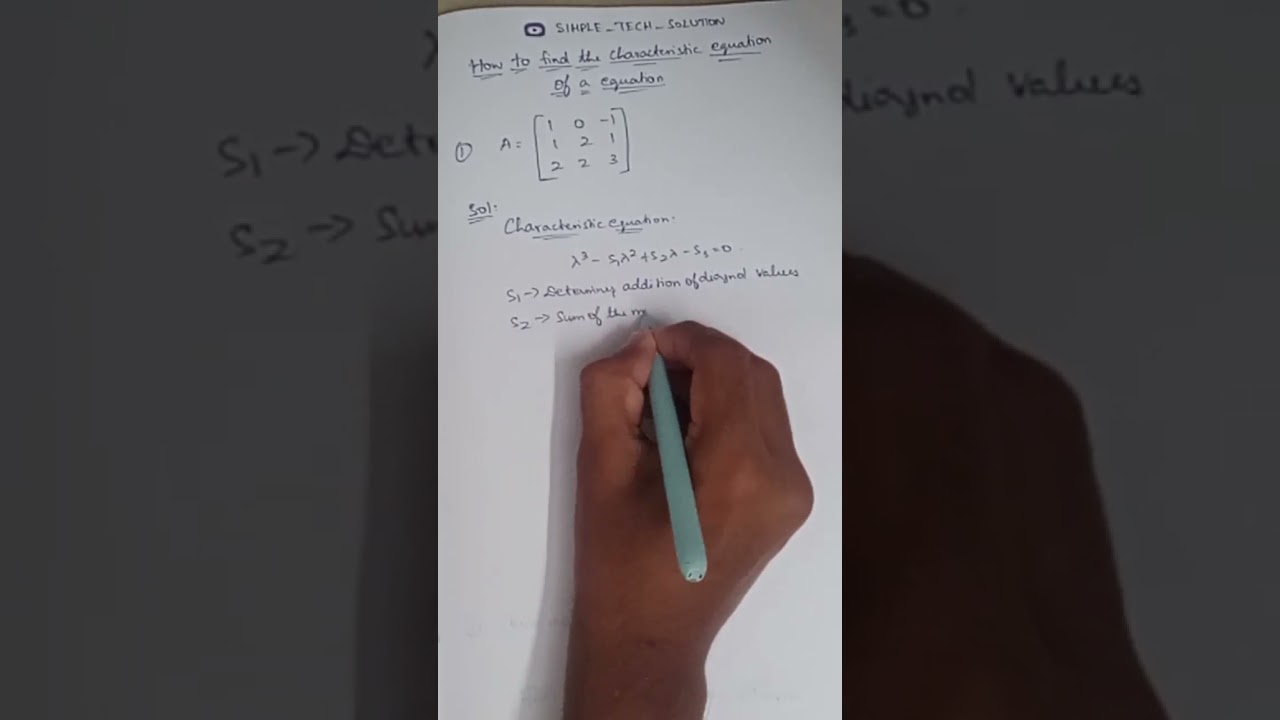 SIMPLE_TECH_SOLUTION
How to find the characteristic equation
of a equation
① A = [1 0 -1
1 2 1
2 2 3]
Sol:
Characteristic equation:
λ³ - S₁λ² + S₂λ - S₃ = 0
S₁ → addition of values
S₂ → Sum of the m